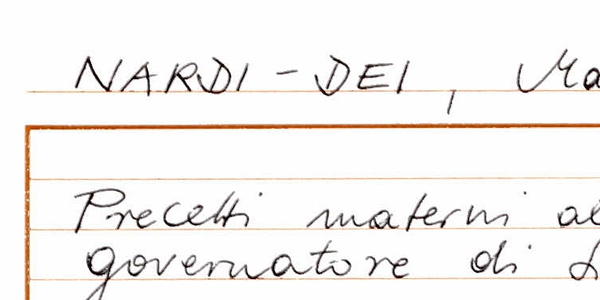 NARDI-DEI, Ma
Precetti materni al
governatore di